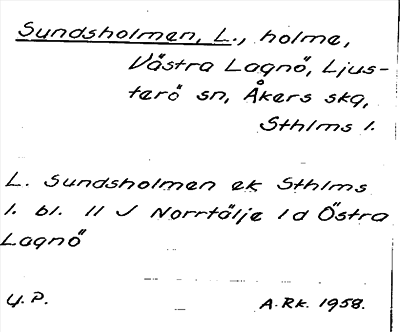 Sundsholmen, L., holme,
Västra Lagnö, Ljus-
terö sn, Åkers skg,
Sthlms l.
L. Sundsholmen ek Sthlms
l. bl. 11 J Norrtälje 1d Östra
Lagnö
Y.P. A.Rk. 1958.